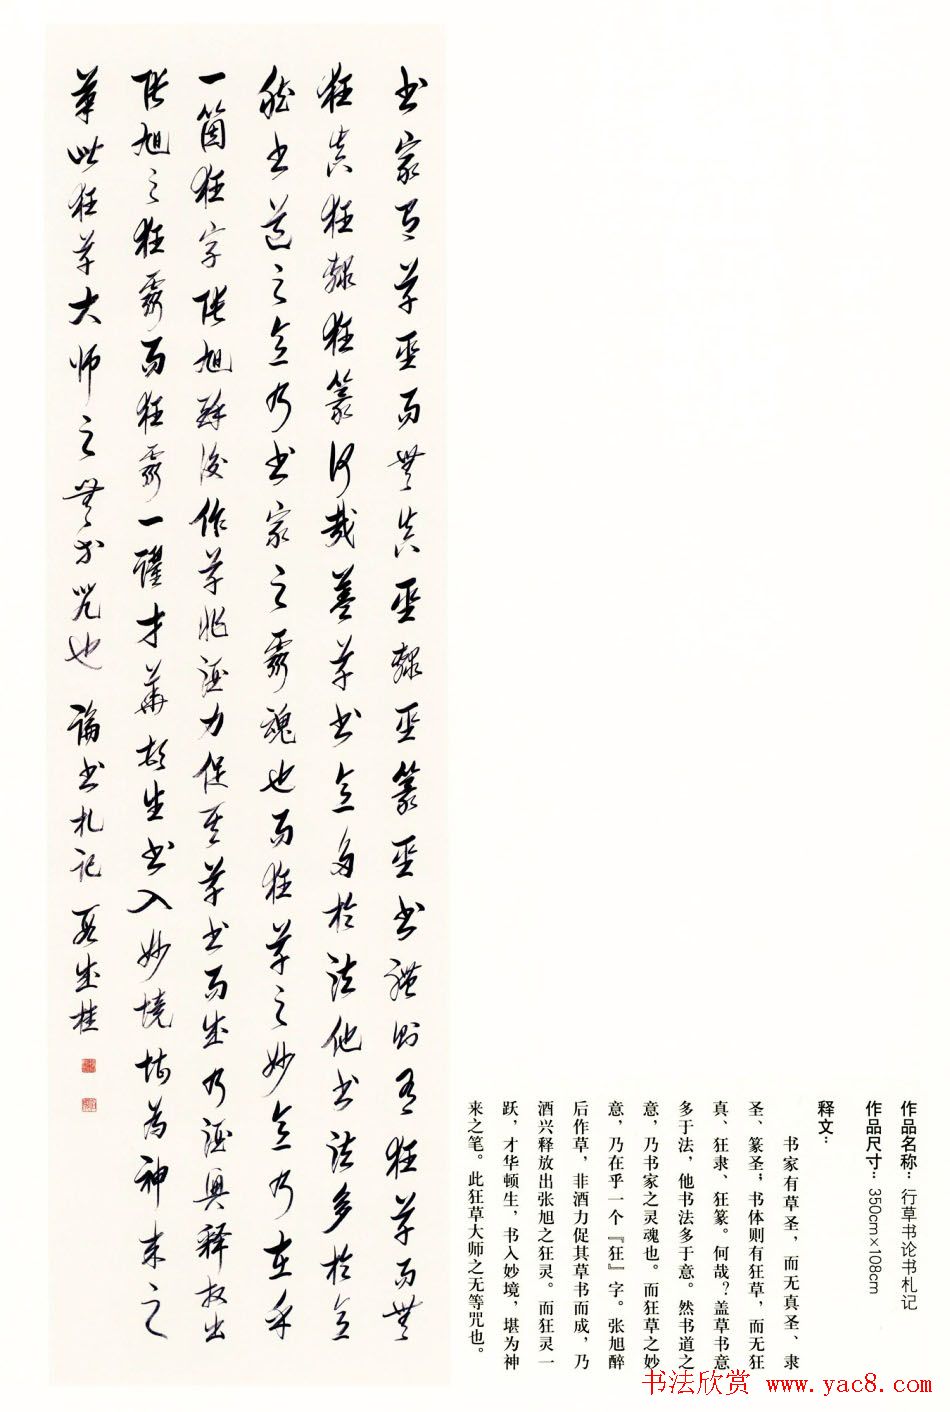 書家有草聖而無真聖隸聖篆聖書體則有狂草而無
狂真狂隸狂篆何哉蓋草書意多於法他書法多於意
然書道之意乃書家之靈魂也而狂草之妙意乃在乎
一箇狂字張旭醉後作草非酒力促其草書而成乃酒興釋放出
張旭之狂靈而狂靈一躍才華頓生書入妙境堪為神來之
筆此狂草大師之無等咒也 論書札記 成桂
作品名称：行草书论书札记
作品尺寸：350cm×108cm
释文：
书家有草圣，而无真圣、隶
圣、篆圣；书体则有狂草，而无狂
真、狂隶、狂篆。何哉？盖草书意
多于法，他书法多于意。然书道之
意，乃书家之灵魂也。而狂草之妙
意，乃在乎一个『狂』字。张旭醉
后作草，非酒力促其草书而成，乃
酒兴释放出张旭之狂灵。而狂灵一
跃，才华顿生，书入妙境，堪为神
来之笔。此狂草大师之无等咒也。
书法欣赏 www.yac8.com